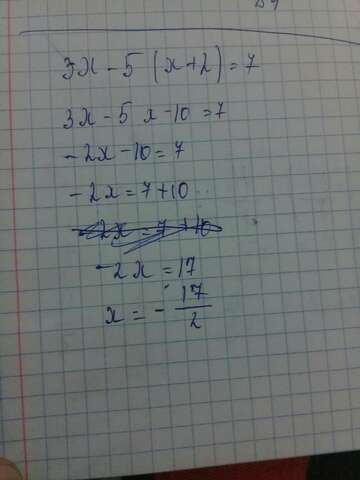 3x - 5 (x+2) = 7
3x - 5 x - 10 = 7
- 2x - 10 = 7
- 2x = 7 + 10
- 2x = 7 + 10
- 2x = 17
x = - 17/2